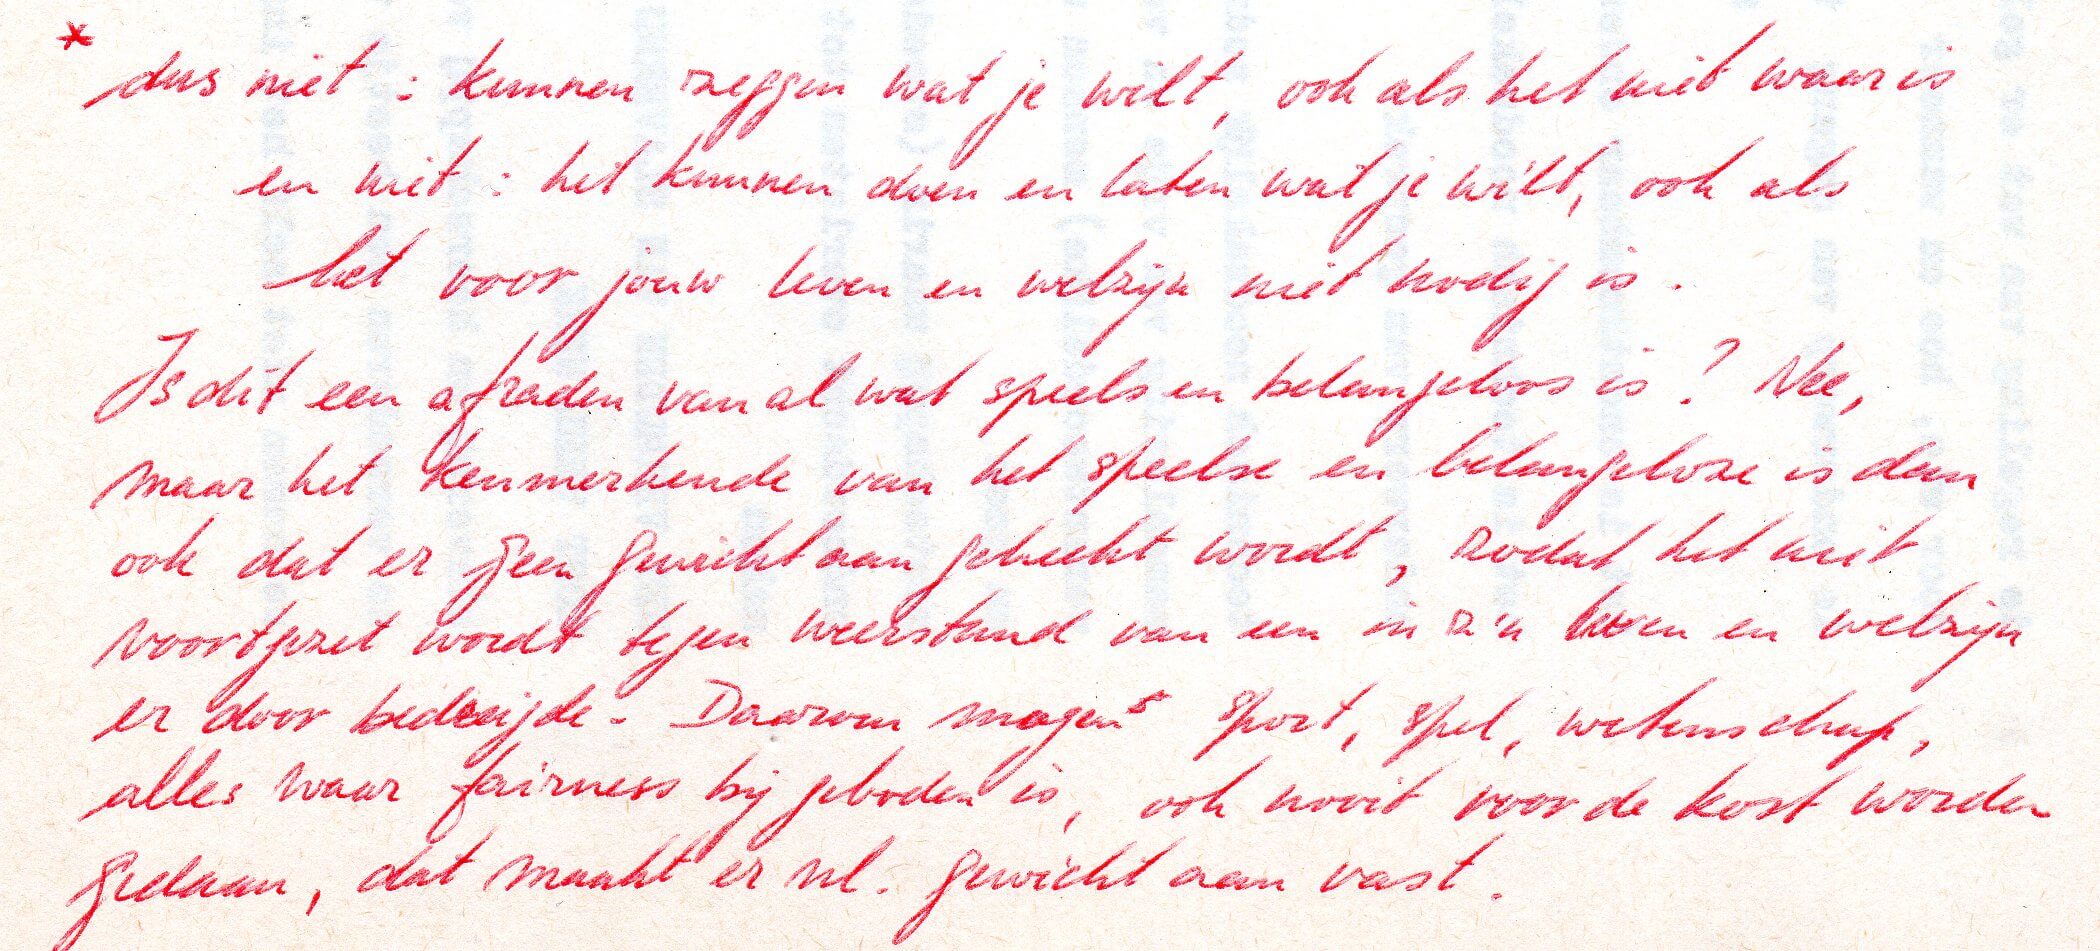 *
dus niet : kunnen zeggen wat je wilt, ook als het niet waar is
en niet : het kunnen doen en laten wat je wilt, ook als
het voor jouw leven en welzijn niet nodig is .
Is dit een afraden van al wat speels en belangeloos is? Nee,
maar het kenmerkende van het speelse en belangeloze is dan
ook dat er geen gewicht aan gehecht wordt, zodat het niet
voortgezet wordt tegen weerstand van een in z'n leven en welzijn
er door bedreigde. Daarom mogen sport, spel, wetenschap,
alles waar fairness bij geboden is, ook nooit voor de kost worden
gedaan, dat maakt er nl. gewicht aan vast.